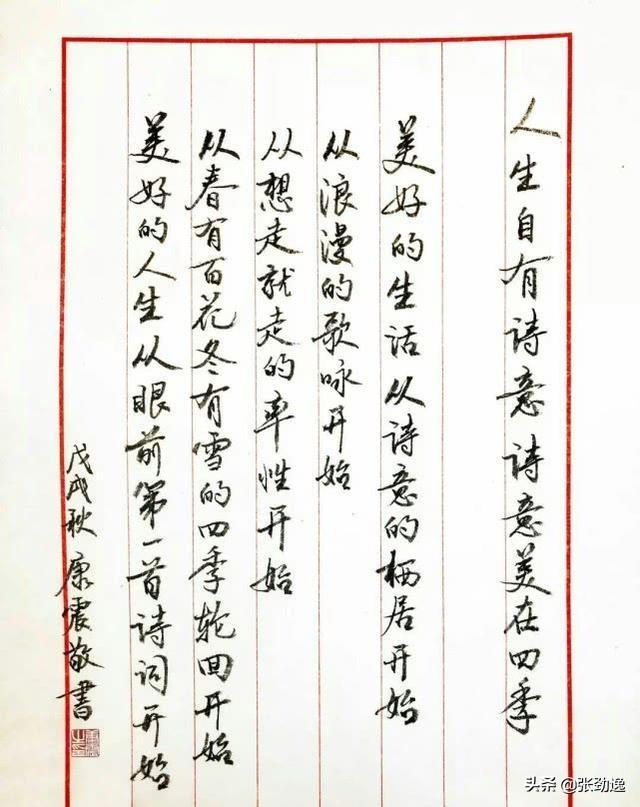 人生自有诗意 诗意美在四季
美好的生活从诗意的栖居开始
从浪漫的歌咏开始
从想走就走的率性开始
从春有百花冬有雪的四季轮回开始
美好的人生从眼前第一首诗词开始
戊戌秋 康震敬书
头条 @张劲逸